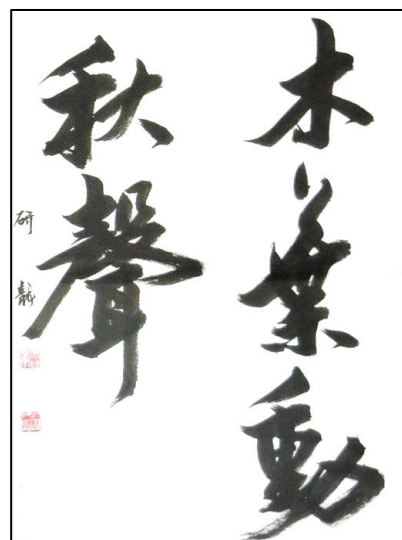 木葉動
秋聲
研龍